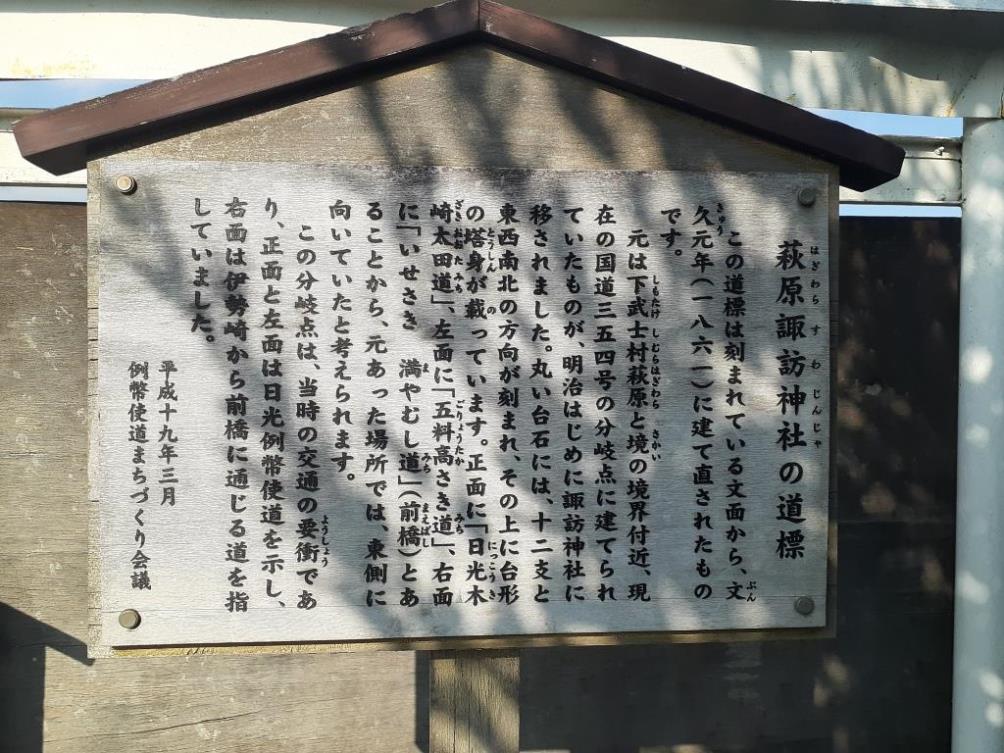 萩原諏訪神社の道標
この道標は刻まれている文面から、文
久元年(一八六一)に建て直されたもの
です。
元は下武士村萩原と境の境界付近、現
在の国道三五四号の分岐点に建てられ
ていたものが、明治はじめに諏訪神社に
移されました。丸い台石には、十二支と
東西南北の方向が刻まれ、その上に台形
の塔身が載っています。正面に「日光木
崎太田道」、左面に「五料高さき道」、右面
に「いせさき 満やむし道」(前橋)とあ
ることから、元あった場所では、東側に
向いていたと考えられます。
この分岐点は、当時の交通の要衝であ
り、正面と左面は日光例幣使道を示し、
右面は伊勢崎から前橋に通じる道を指
していました。
平成十九年三月
例幣使道まちづくり会議